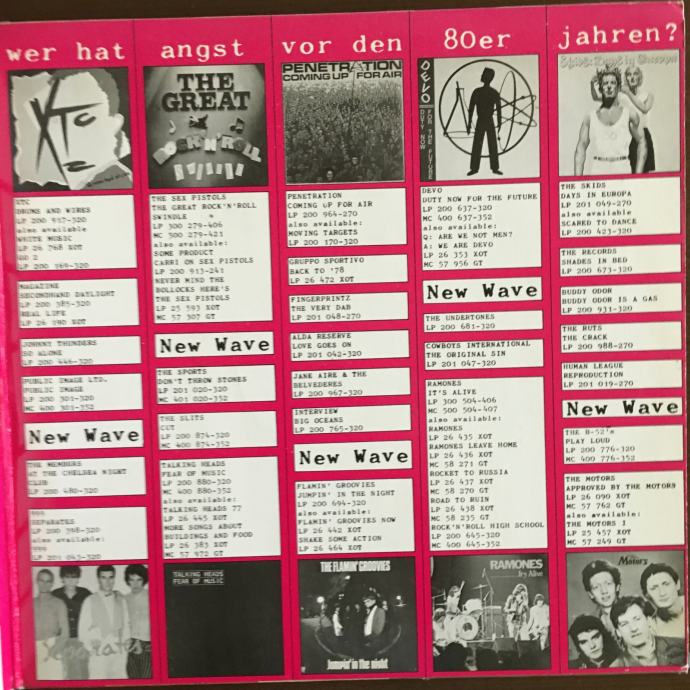 wer hat angst vor den 80er jahren?
XTC
DRUMS AND WIRES
LP 200 937-320
also available
WHITE MUSIC
LP 26 768 XOT
GO 2
LP 200 169-320
MAGAZINE
SECONDHAND DAYLIGHT
LP 200 385-320
REAL LIFE
LP 26 190 XOT
JOHNNY THUNDERS
SO ALONE
LP 200 446-320
PUBLIC IMAGE LTD.
PUBLIC IMAGE
LP 200 301-320
MC 400 301-352
New Wave
THE MEMBERS
AT THE CHELSEA NIGHT
CLUB
LP 200 480-320
999
SEPARATES
LP 200 398-320
also available:
999
LP 201 043-320
Separates
THE
GREAT
ROCK'N'ROLL
THE SEX PISTOLS
THE GREAT ROCK'N'ROLL
SWINDLE
LP 300 279-406
MC 500 279-421
also available:
SOME PRODUCT
CARRI ON SEX PISTOLS
LP 200 913-241
NEVER MIND THE
BOLLOCKS HERE'S
THE SEX PISTOLS
LP 25 593 XOT
MC 57 307 GT
New Wave
THE SPORTS
DON'T THROW STONES
LP 201 020-320
MC 401 020-352
THE SLITS
CUT
LP 200 874-320
MC 400 874-352
TALKING HEADS
FEAR OF MUSIC
LP 200 880-320
MC 400 880-352
also available:
TALKING HEADS 77
LP 26 445 XOT
MORE SONGS ABOUT
BUILDINGS AND FOOD
LP 26 383 XOT
MC 57 972 GT
TALKING HEADS
FEAR OF MUSIC
PENETRATION
COMING UP FOR AIR
PENETRATION
COMING UP FOR AIR
LP 200 964-270
also available:
MOVING TARGETS
LP 200 170-320
GRUPPO SPORTIVO
BACK TO '78
LP 26 472 XOT
FINGERPRINTZ
THE VERY DAB
LP 201 048-270
ALDA RESERVE
LOVE GOES ON
LP 201 042-320
JANE AIRE & THE
BELVEDERES
LP 200 967-320
INTERVIEW
BIG OCEANS
LP 200 765-320
New Wave
FLAMIN' GROOVIES
JUMPIN' IN THE NIGHT
LP 200 694-320
also available:
FLAMIN' GROOVIES NOW
LP 26 442 XOT
SHAKE SOME ACTION
LP 26 464 XOT
THE FLAMIN' GROOVIES
Jumpin' in the night
DEVO
DUTY NOW FOR THE FUTURE
DEVO
DUTY NOW FOR THE FUTURE
LP 200 637-320
MC 400 637-352
also available:
Q: ARE WE NOT MEN?
A: WE ARE DEVO
LP 26 353 XOT
MC 57 956 GT
New Wave
THE UNDERTONES
LP 200 681-320
COWBOYS INTERNATIONAL
THE ORIGINAL SIN
LP 201 047-320
RAMONES
IT'S ALIVE
LP 300 504-406
MC 500 504-407
also available:
RAMONES
LP 26 435 XOT
RAMONES LEAVE HOME
LP 26 436 XOT
MC 58 271 GT
ROCKET TO RUSSIA
LP 26 437 XOT
MC 58 270 GT
ROAD TO RUIN
LP 26 438 XOT
MC 58 235 GT
ROCK'N'ROLL HIGH SCHOOL
LP 200 645-320
MC 400 645-352
RAMONES
It's Alive
Skids: Days in Europa
THE SKIDS
DAYS IN EUROPA
LP 201 049-270
also available
SCARED TO DANCE
LP 200 423-320
THE RECORDS
SHADES IN BED
LP 200 673-320
BUDDY ODOR
BUDDY ODOR IS A GAS
LP 200 931-320
THE RUTS
THE CRACK
LP 200 988-270
HUMAN LEAGUE
REPRODUCTION
LP 201 019-270
New Wave
THE B-52's
PLAY LOUD
LP 200 776-320
MC 400 776-352
THE MOTORS
APPROVED BY THE MOTORS
LP 26 090 XOT
MC 57 762 GT
also available:
THE MOTORS 1
LP 25 457 XOT
MC 57 249 GT
the Motors